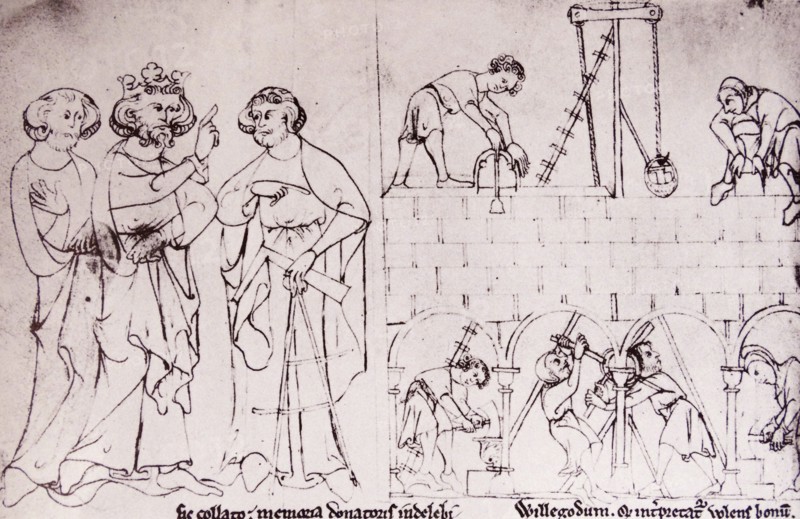 sic collato; memoria donatoris indelebi
Willegodum. Qd interpretatr volens bonū.